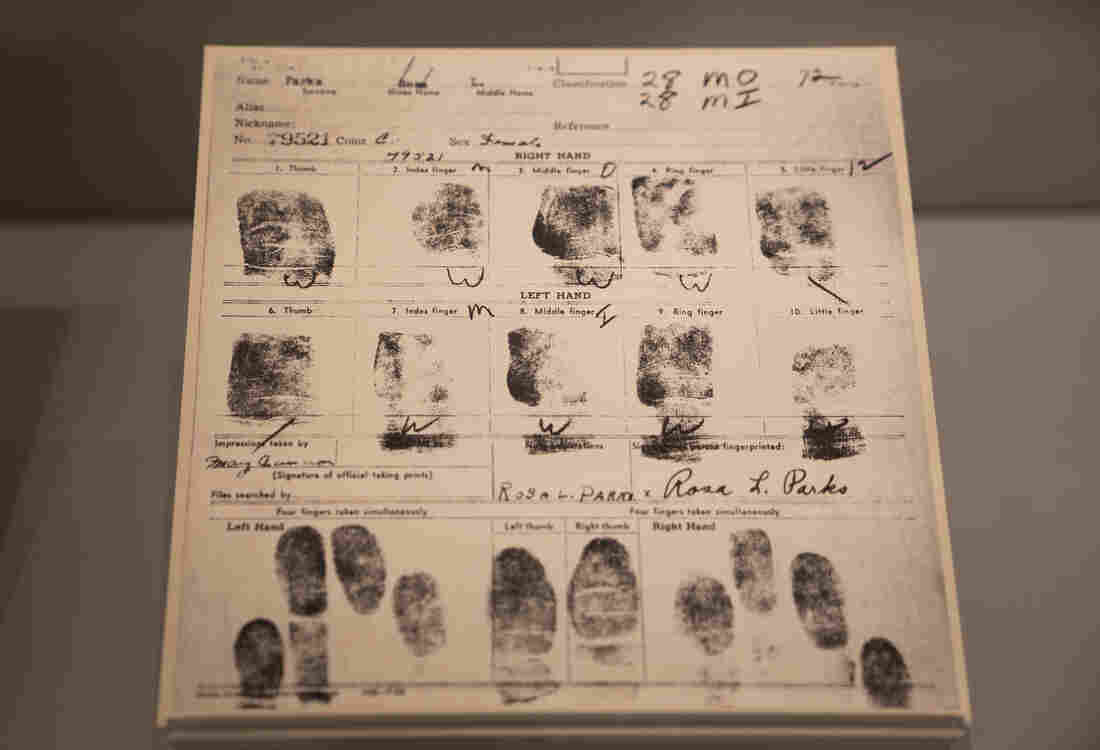 Name Parks
Surname Given Name Middle Name Classification 28 MO 12
28 MI
Alias
Nickname: Reference
No. 79521 Color C. Sex Female
79521 RIGHT HAND
1. Thumb 2. Index finger M 3. Middle finger O 4. Ring finger 5. Little finger 12
W W W W \
LEFT HAND
6. Thumb 7. Index finger M 8. Middle finger I 9. Ring finger 10. Little finger
/ W W W
Impressions taken by person fingerprinted:
Mary
(Signature of official taking prints)
Files searched by ROSA L. PARKS x Rosa L. Parks
Four fingers taken simultaneously Four fingers taken simultaneously
Left Hand Left thumb Right thumb Right Hand